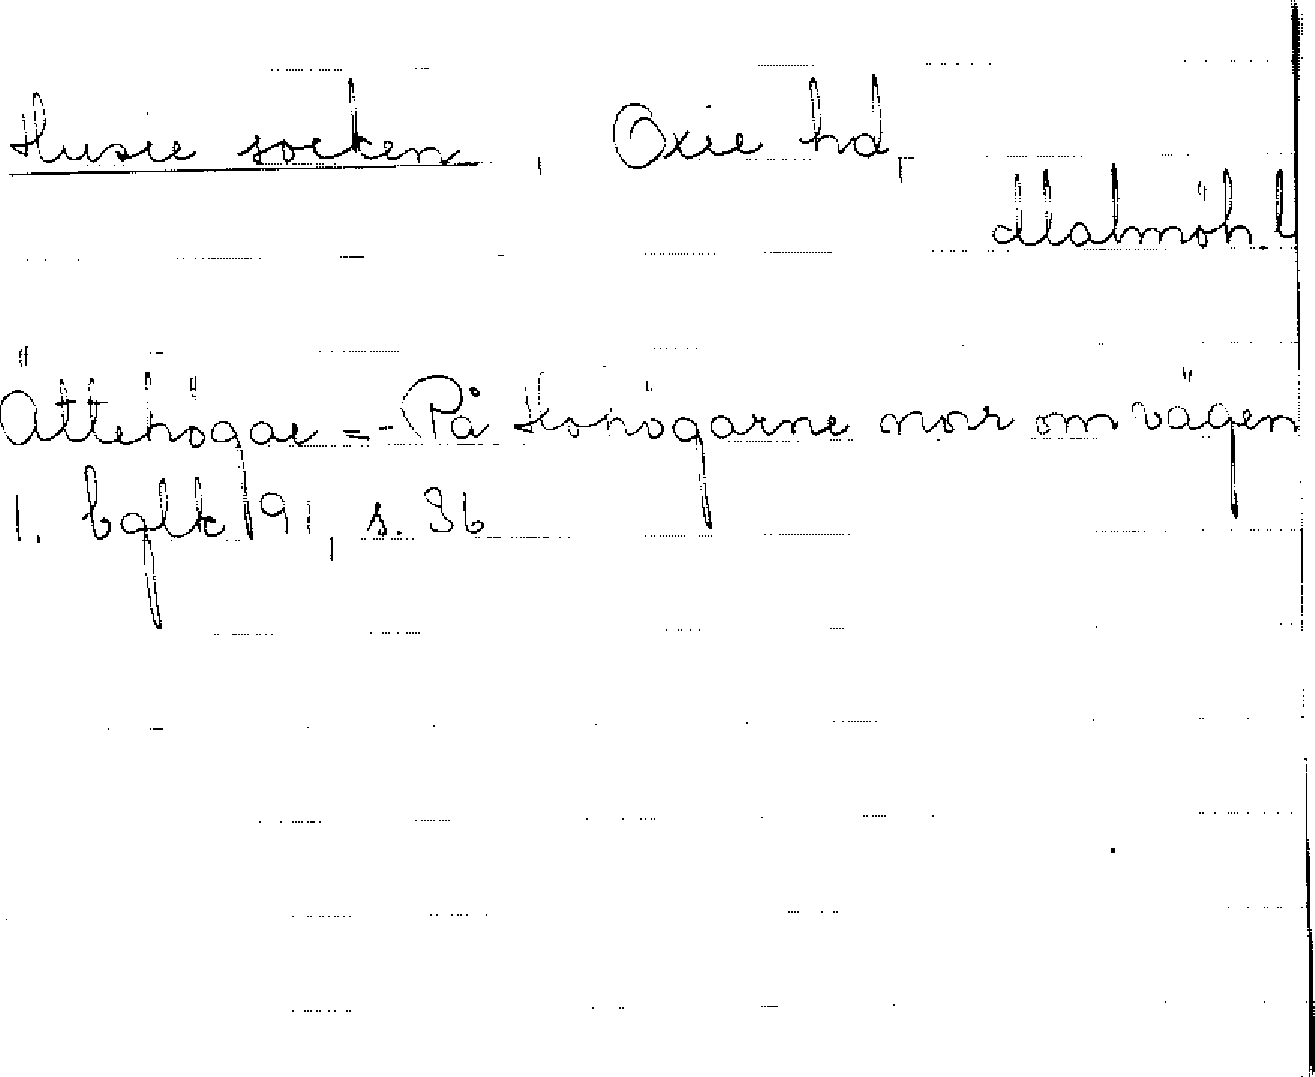 Husie socken, Oxie hd,
Malmöh. l
Ättehögar =- På Hohögarne norr om vägen
1. bglk 191, s. 36